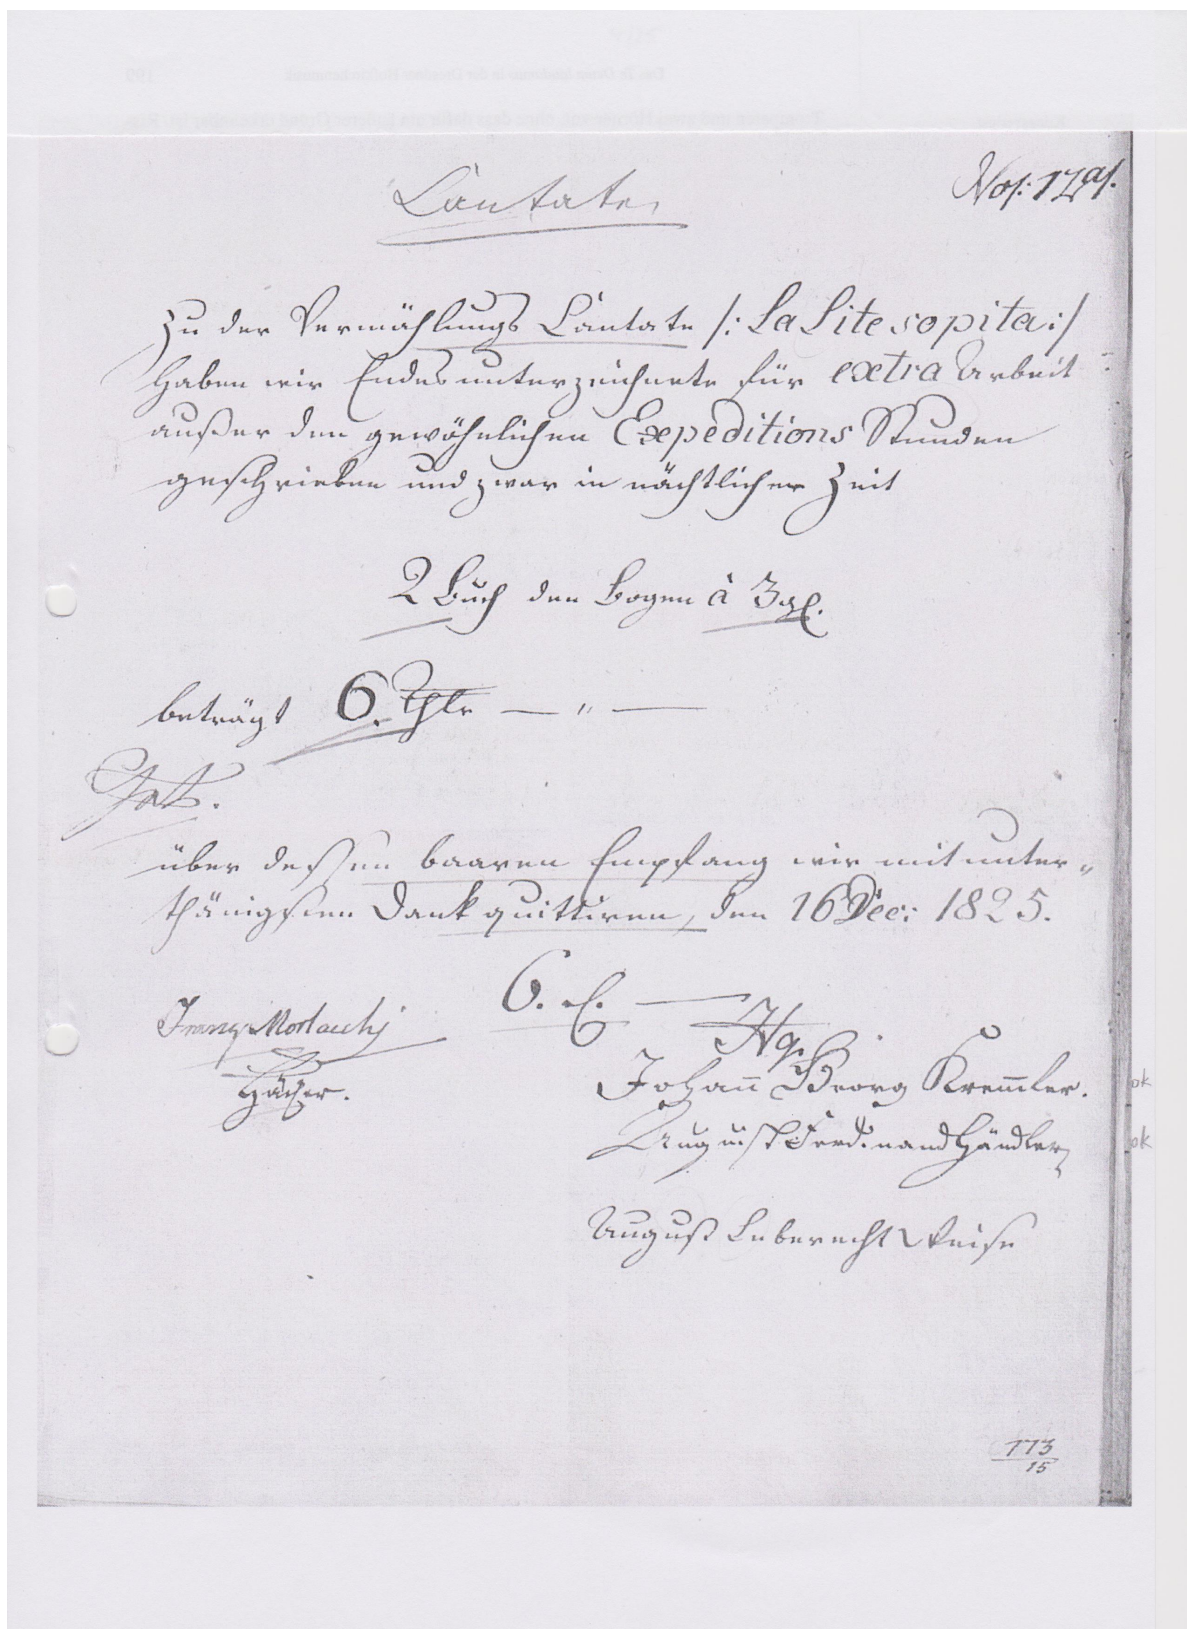 Cantate
No: 17
Zu der Vermählungs Cantate /: La Lite sopita :/
haben wir Endesunterzeichnete für extra Arbeit
außer den gewöhnlichen Expeditions Stunden
geschrieben und zwar in nächtlicher Zeit
2 Buch den Bogen à 3 gl.
beträgt 6. Thlr — " —
über deßen baaren Empfang wir mit unter-
thänigsten Dank quittiren, den 16 Dec: 1825.
6. rl. —
Morlacchi
Johann Georg Kremmler.
ok
August Ferdinand Händler
ok
August Leberecht Weise
173
15